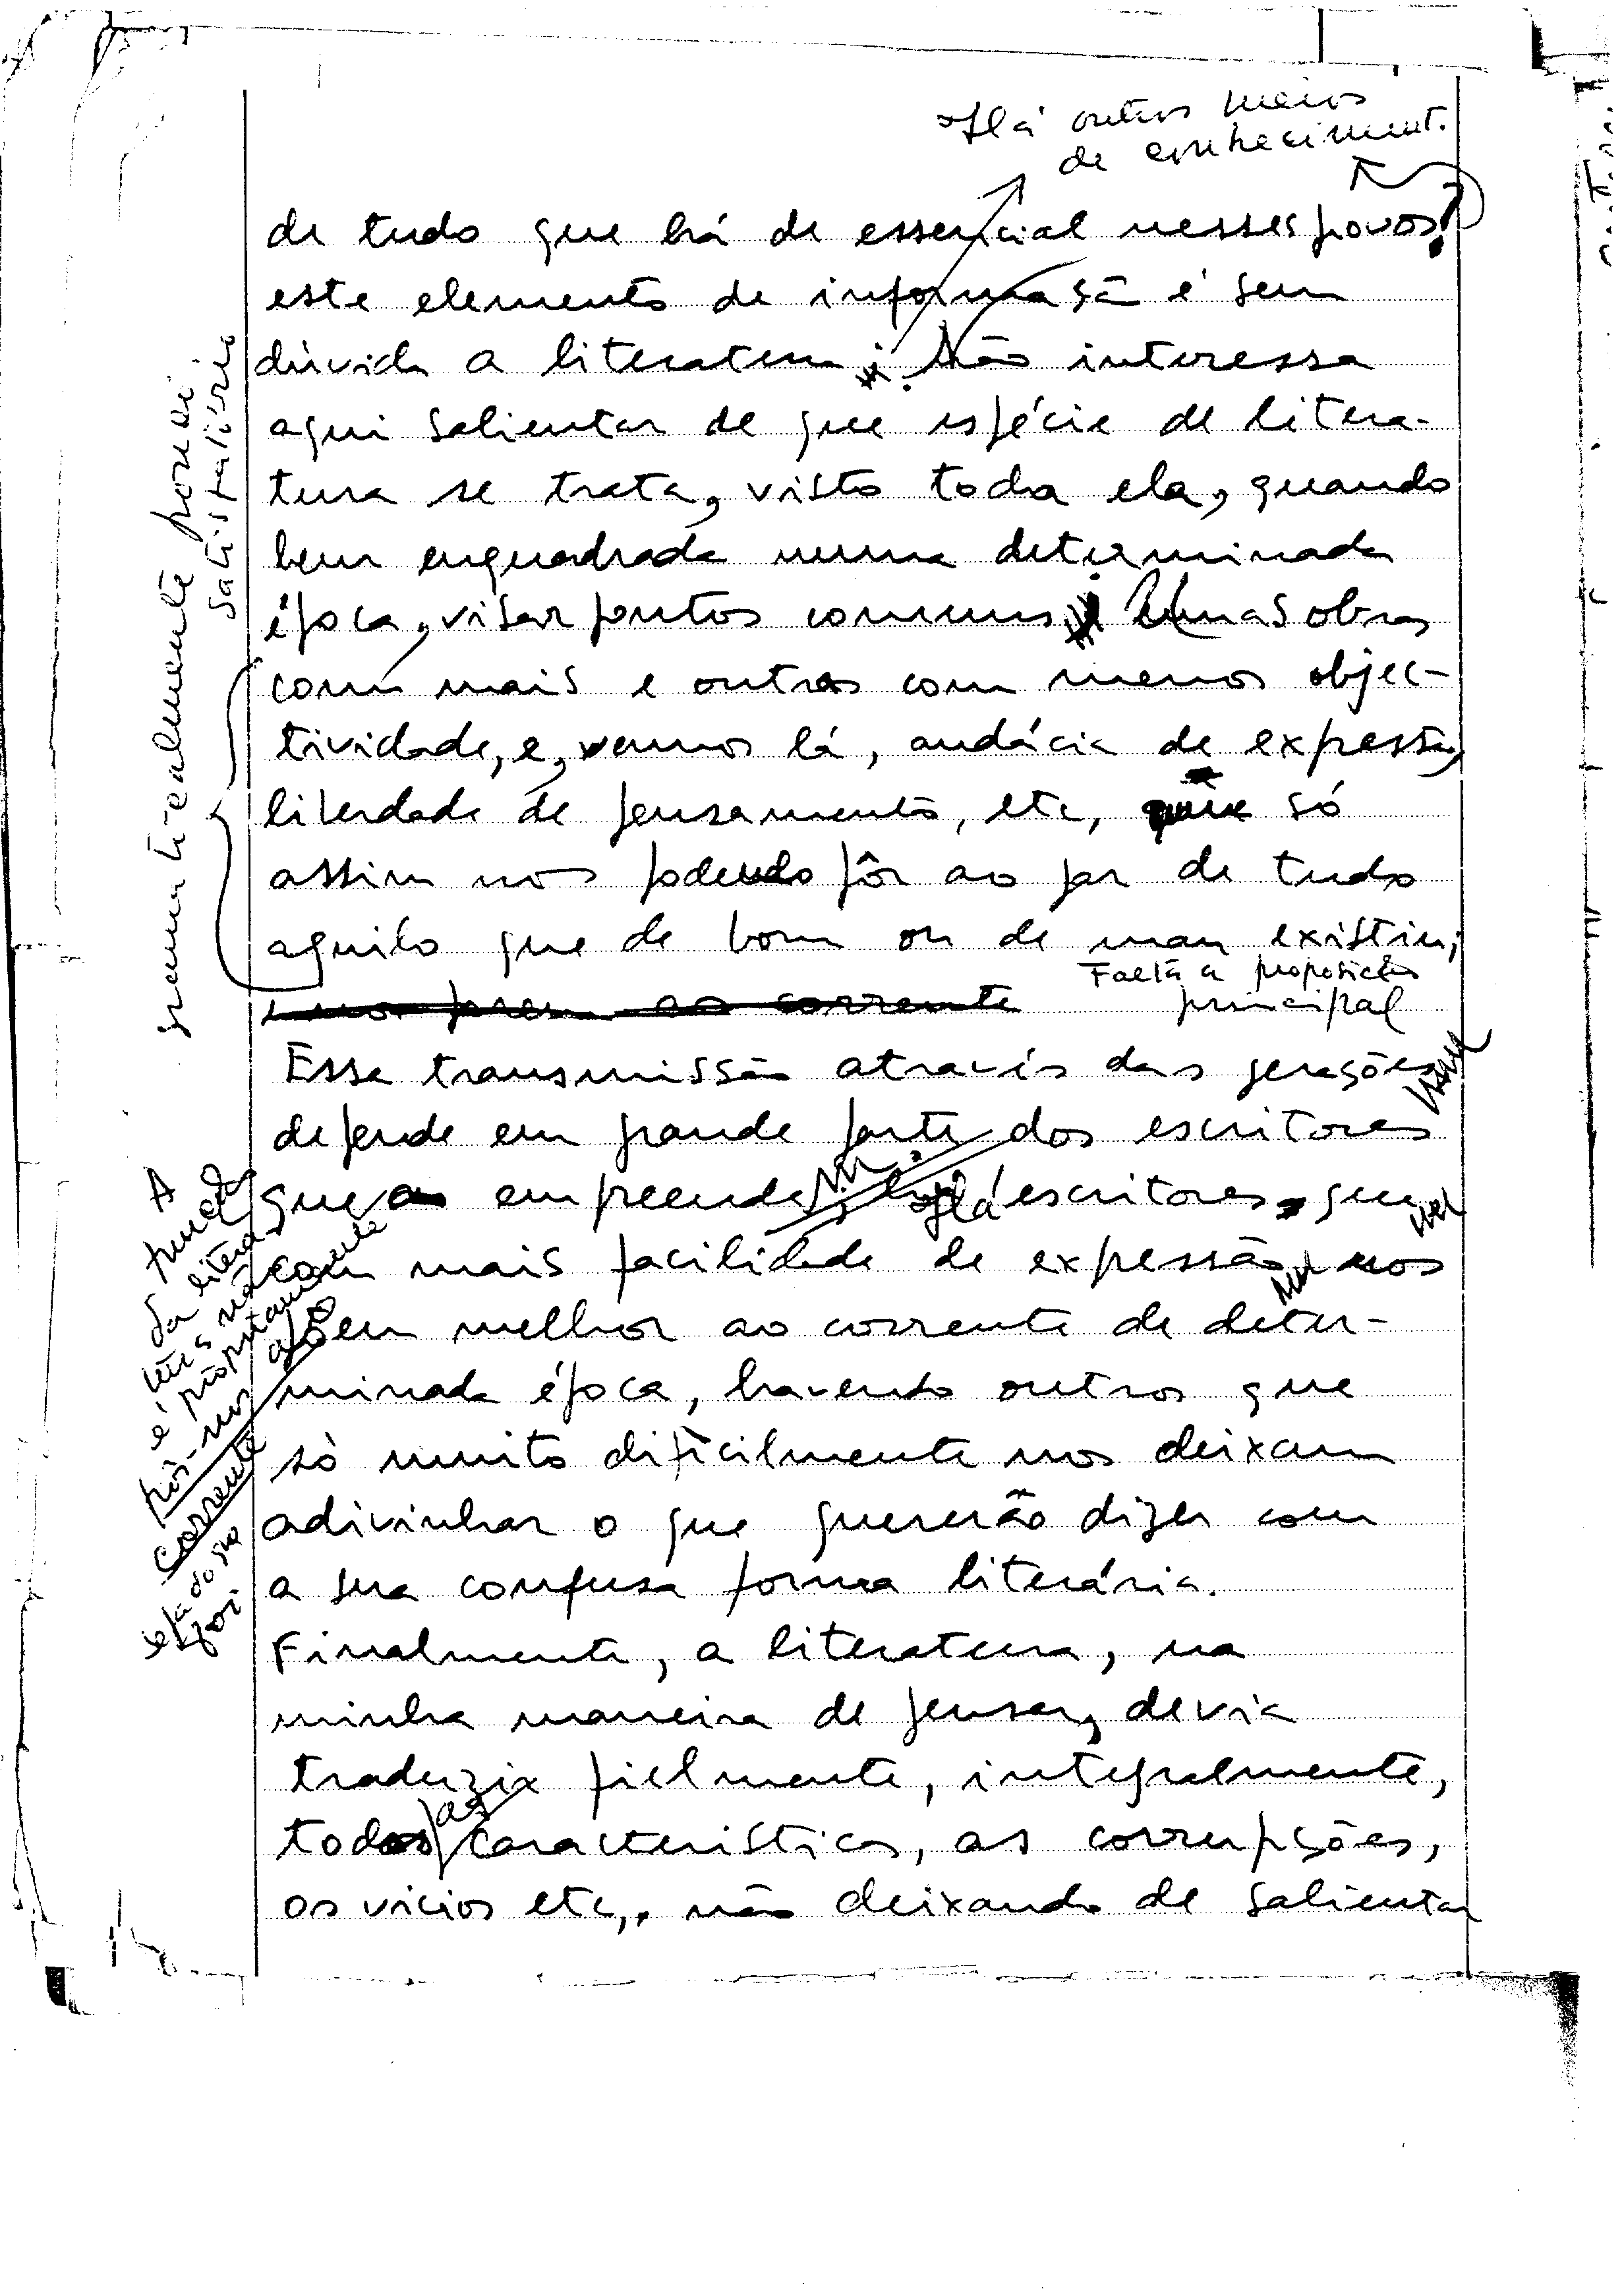 Há outros meios
de conheciment.
de tudo que há de essencial nesses povos?
este elemento de informaçã é sem
dúvida a literatura; Não interessa
aqui salientar de que espécie de litera-
tura se trata, visto toda ela, quando
bem enquadrada numa determinada
época, visar pontos comuns. Umas obras
com mais e outras com menos objec-
tividade, e, vamos lá, audácia de expressão,
liberdade de pensamento, etc, só
assim nos podendo pôr ao par de tudo
aquilo que de bom ou de mau existiu;
Falta a proposição
principal
Essa transmissão através das gerações
depende em grande parte dos escritores
que a empreendem. Há escritores, que
com mais facilidade de expressão, nos
põem melhor ao corrente de deter-
minada época, havendo outros que
só muito dificilmente nos deixam
adivinhar o que quererão dizer com
a sua confusa forma literária.
Finalmente, a literatura, na
minha maneira de pensar, devia
traduzir fielmente, integralmente,
todas as características, as corrupções,
os vícios etc,. não deixando de salientar
gramaticalmente pouco
satisfatório
A
função
da litera-
tura não
é propriamente
pôr-nos ao
corrente
do que
foi